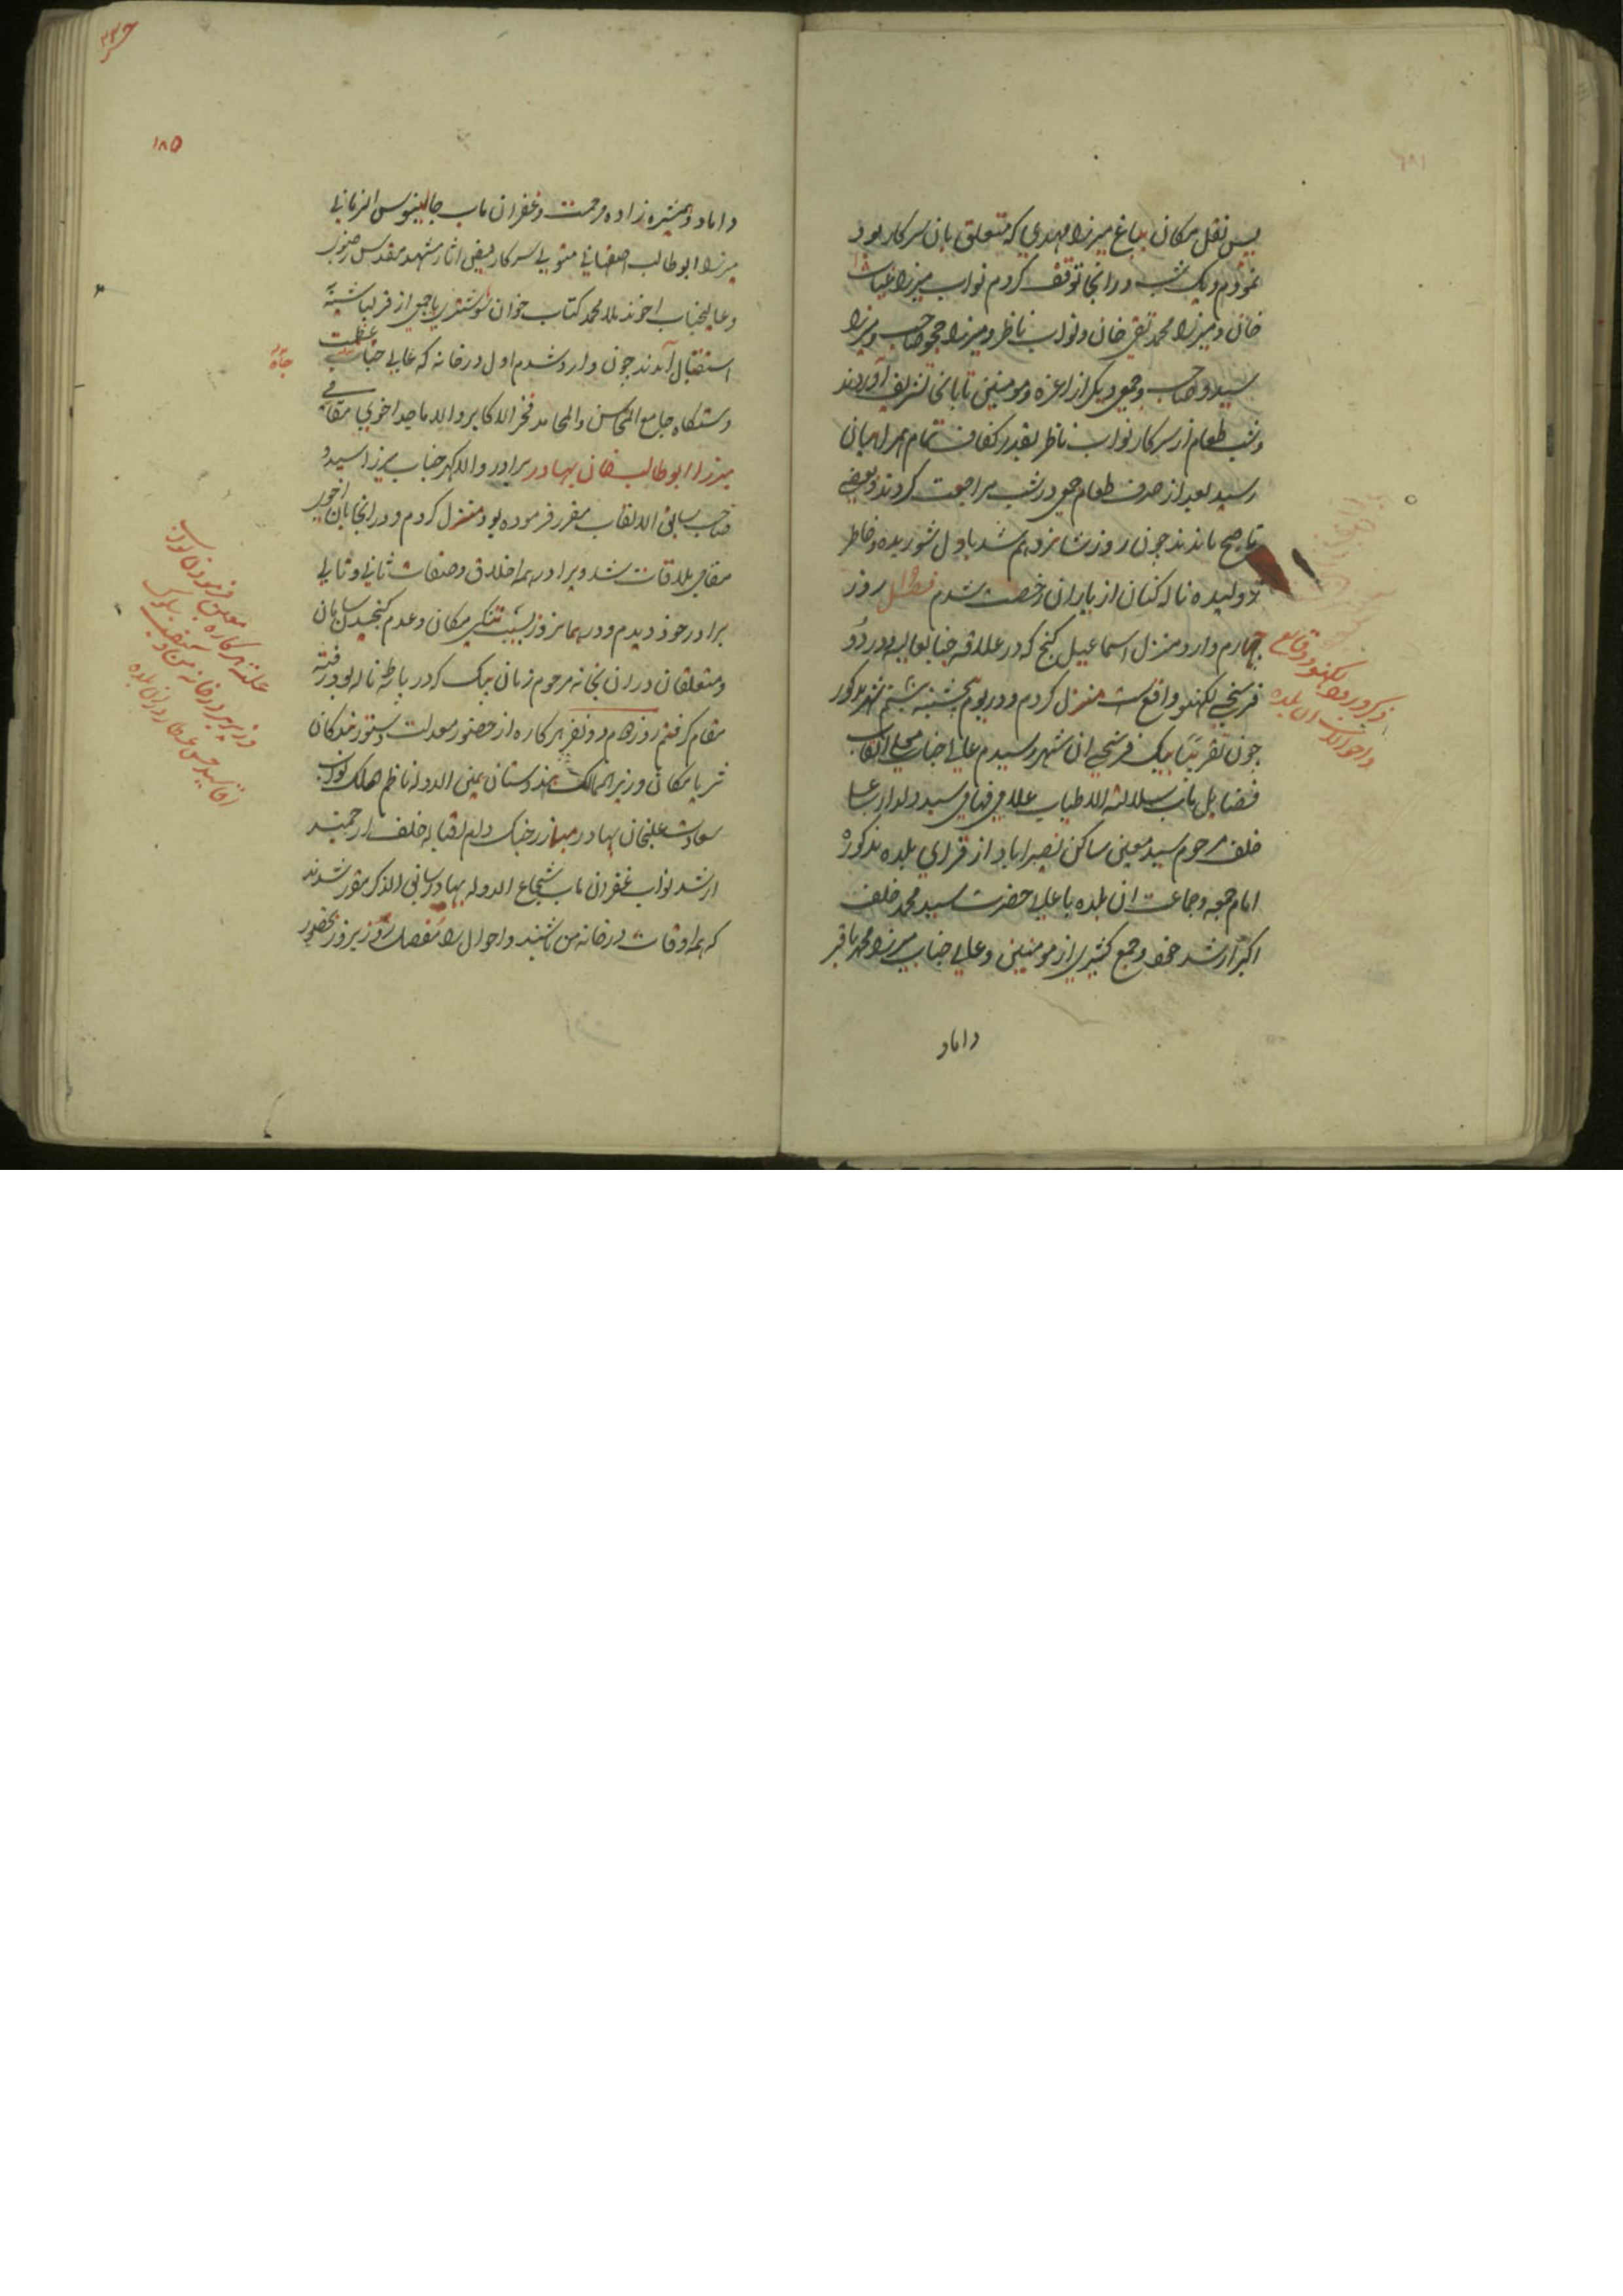 پس نقل مکان بباغ میرزا مهدی که متعلق بان سرکار بود
نمودم ویک شب درانجا توقف کردم نواب میرزا غیاث
خان ومیرزا محمد تقی خان ونواب ناظر ومیرزا حجو صاحب ومیرزا
سیدو صاحب وجمعی دیکر از اعزه ومومنین تا بانجا تشریف آوردند
وشب طعام از سرکار نواب ناظر بقدر کفاف تمام همراهیان
رسید بعد از صرف طعام جمعی در شب مراجعت کردند وبعضی
تا صبح ماندند چون روز شانزدهم شد با دل شوریده وخاطر
ژولیده ناله کنان از یاران رخصت شدم فصل روز
چهارم وارد منزل اسماعیل کنج که در علاقه جنابعالیه ودر دو
فرسخی لکهنو واقع است منزل کردم ودر یوم پنجشنبه بیستم شهر مذکور
چون تقریبا بیک فرسخی ان شهر رسیدم عالیجناب معلی القاب
فضایل ماب سلالة الاطیاب علامی فهامی سید دلدار علی
خلف مرحوم سید معین ساکن نصیراباد از قرای بلده مذکوره
امام جمعه وجماعت ان بلده با علی حضرت سید محمد خلف
اکبر ارشد خود وجمع کثیری از مومنین وعالی جناب میرزا محمد باقر
داماد
ذکر ورود لکهنو ووقایع
واحوالات ان بلده
۱۸۵
داماد وهمشیره زاده مرحمت وغفران ماب جالینوس الزمانی
میرزا ابوطالب اصفهانی متولی سرکار فیض اثار مشهد مقدس رضوی
وعالیجناب اخوند ملا محمد کتاب خوان شوشتری با جمعی از قزلباشیه
استقبال آمدند چون وارد شدم اول در خانه که عالی جناب عظمت
جاه
دستکاه جامع المحاسن والمحامد فخر الاکابر والاماجد اخوی مقامی
میرزا ابوطالب خان بهادر برادر والا کهر جناب میرزا سیدو
صاحب سابق الالقاب مقرر فرموده بود منزل کردم ودرانجا بان اخوی
مقامی ملاقات شد وبرادر بهمه اخلاق وصفات ثانی وتالی
برادر خود دیدم ودر همانروز بسبب تنکی مکان وعدم کنجیدن سامان
ومتعلقان دران بخانه مرحوم زمان بیک که در باطه ناله بود رفته
مقام کرفتم روز هم دو نفر هرکاره از حضور معدلت دستور بندکان
ثریا مکان وزیر الممالک هندوستان یمین الدوله ناظم الملک نواب
سعادت علیخان بهادر مبارز جنک دام اقباله خلف ارجمند
ارشد نواب غفران ماب شجاع الدوله بهادر سابق الذکر مقرر شدند
که همه اوقات در خانه من باشند واحوال را مفصلا روز بروز بحضور